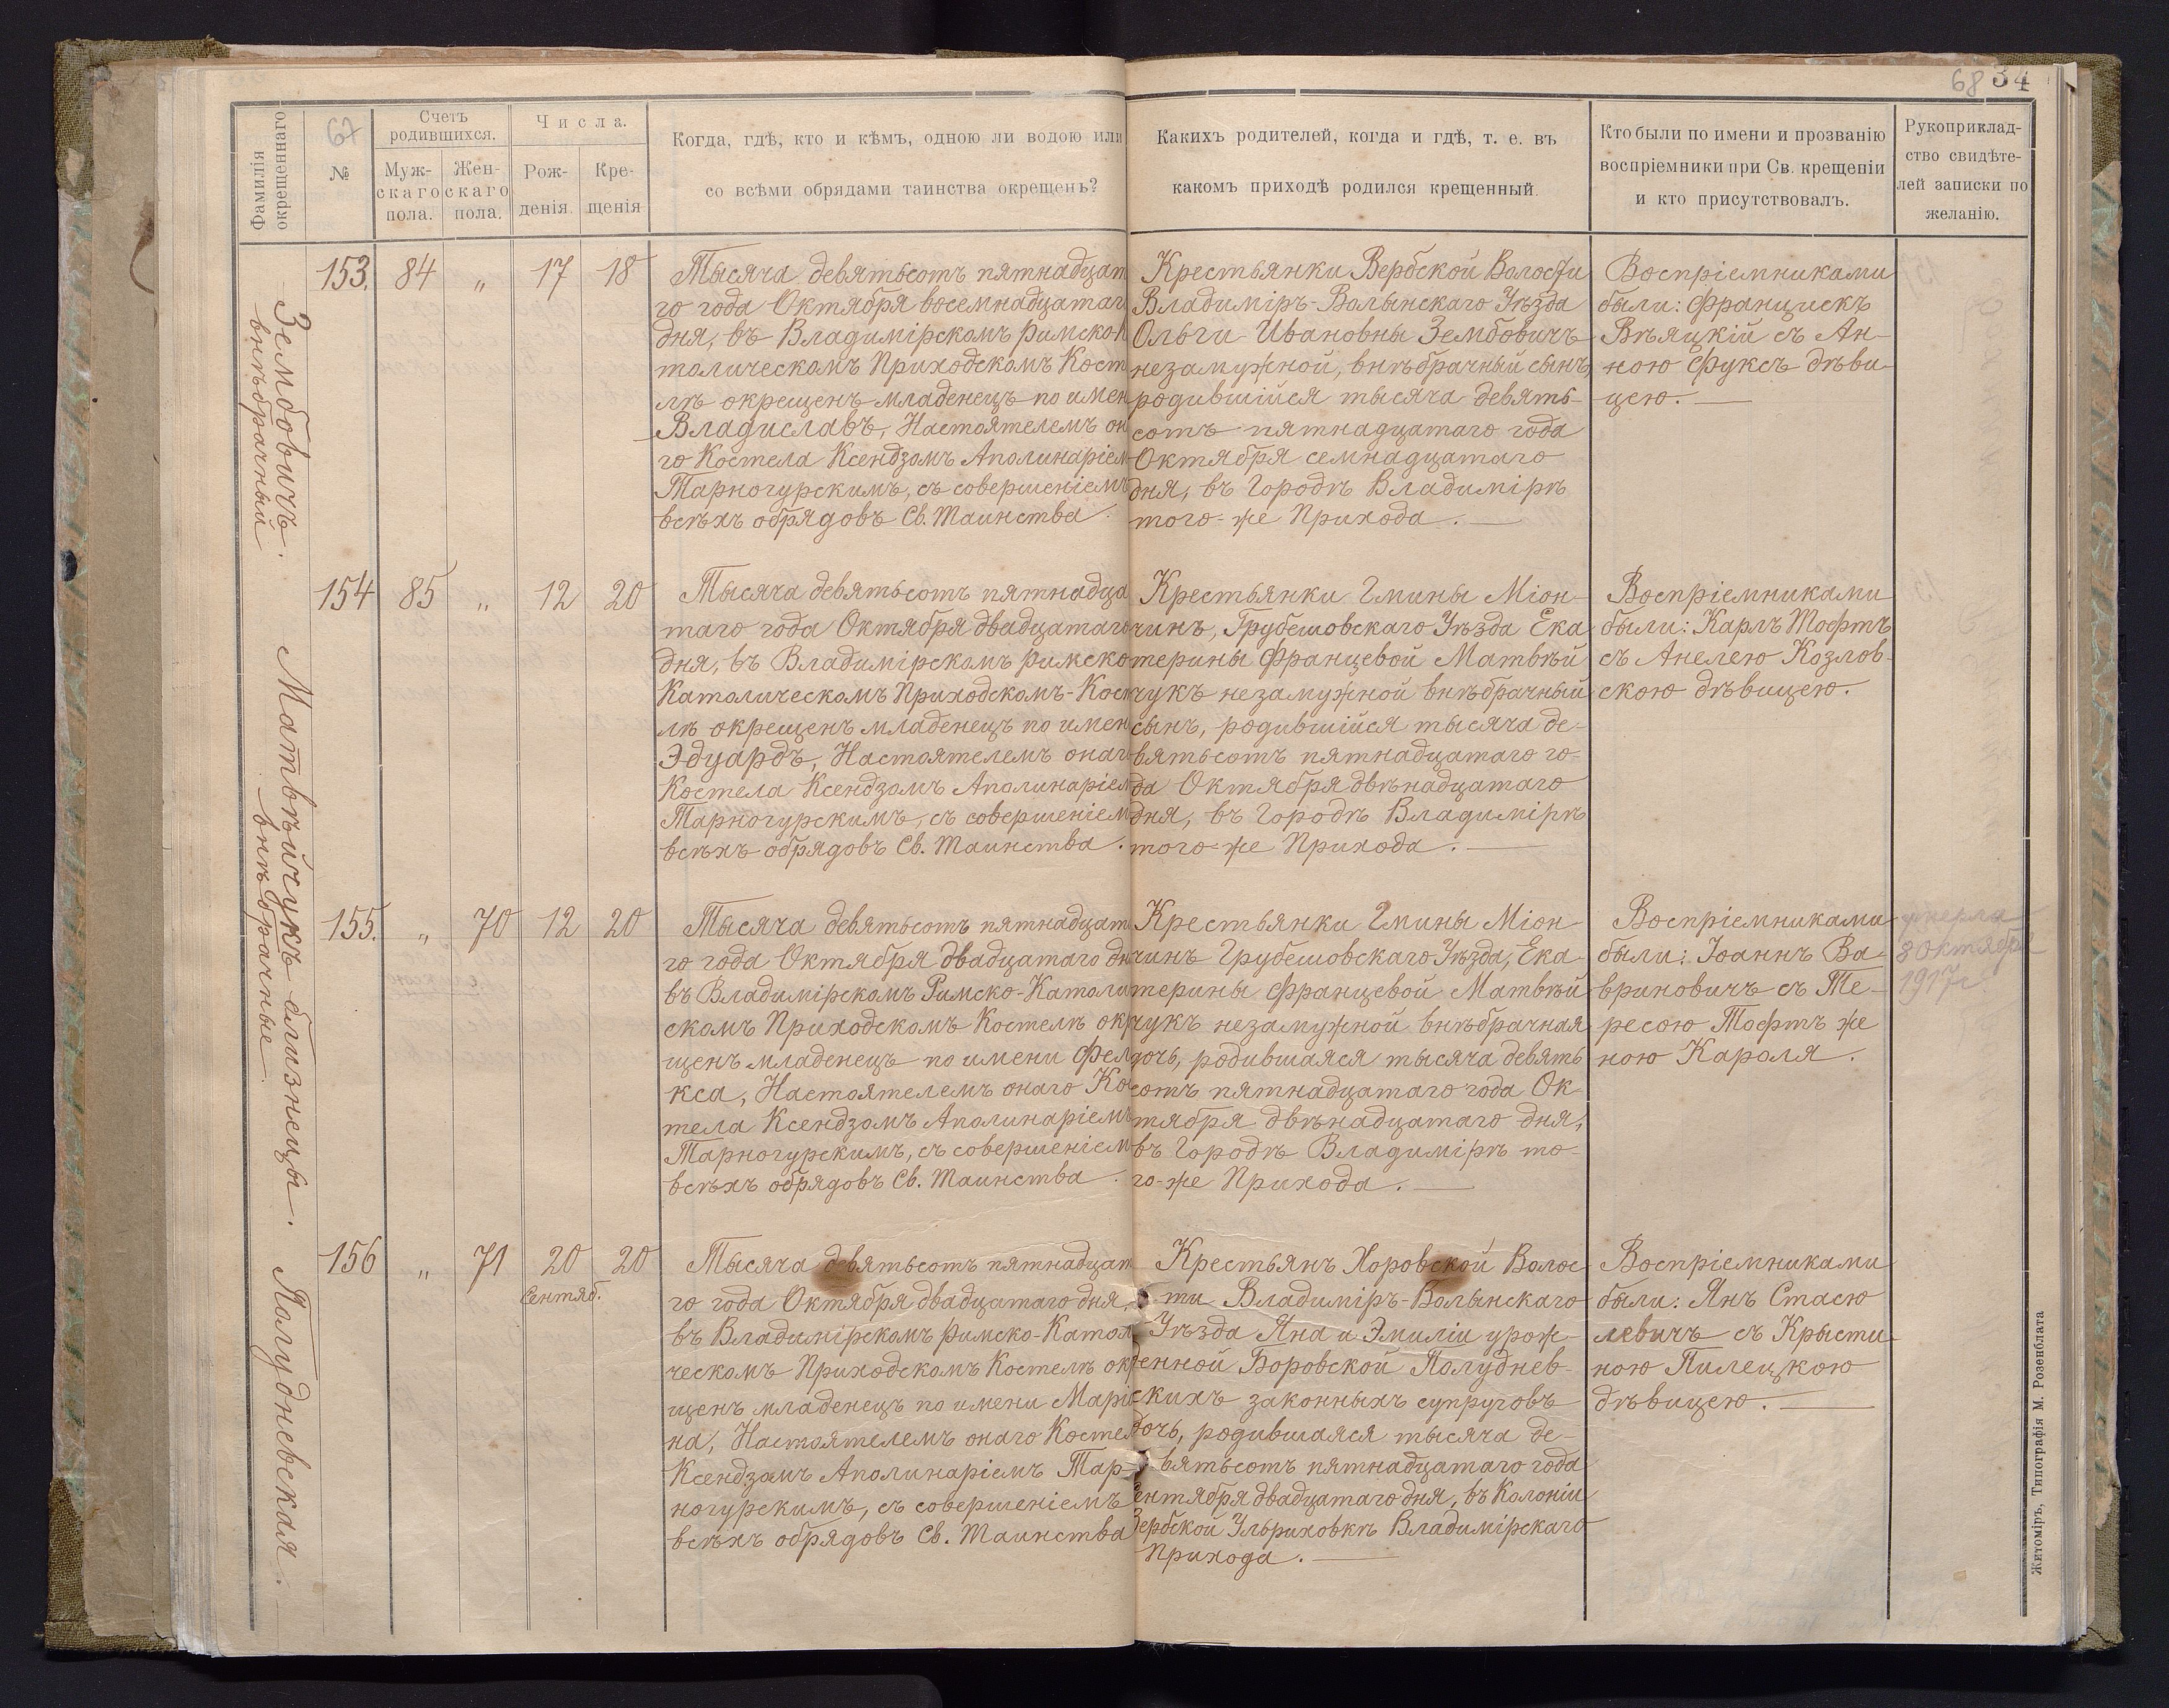 68 34
67
Фамилія
окрещеннаго
№
Счетъ
родившихся.
Муж-
скаго
пола.
Жен-
скаго
пола.
Числа.
Рож-
денія.
Кре-
щенія
Когда, гдѣ, кто и кѣмъ, одною ли водою или
со всѣми обрядами таинства окрещенъ?
Какихъ родителей, когда и гдѣ, т. е. въ
какомъ приходѣ родился крещенный.
Кто были по имени и прозванію
воспріемники при Св. крещеніи
и кто присутствовалъ.
Рукоприклад-
ство свидѣте-
лей записки по
желанію.
Зембовичъ.
внѣбрачный
153. 84 „ 17 18
Тысяча девятьсотъ пятнадцат
го года Октября восемнадцатаг
дня, въ Владимірскомъ Римско-К
толическомъ Приходскомъ Кост
лѣ окрещенъ младенецъ по имен
Владиславъ, Настоятелемъ он
го Костела Ксендзомъ Аполинаріем
Тарногурскимъ, съ совершеніемъ
всѣхъ обрядовъ Св. Таинства.
Крестьянки Вербской Волости
Владиміръ-Волынскаго Уѣзда
Ольги Ивановны Зембовичъ
незамужной, внѣбрачный сынъ,
родившійся тысяча девять-
сотъ пятнадцатаго года
Октября семнадцатаго
дня, въ Городѣ Владимірѣ
того-же Прихода.
Воспріемниками
были: Францискъ
Вѣяцкій съ Ан-
ною Фуксъ дѣви-
цею.
Матвѣйчукъ близнецы.
внѣбрачные.
154 85 „ 12 20
Тысяча девятьсотъ пятнадца
таго года Октября двадцатаго
дня, въ Владимірскомъ Римско
Католическомъ Приходскомъ-Кост
лѣ окрещенъ младенецъ по имен
Эдуардъ, Настоятелемъ онаг
Костела Ксендзомъ Аполинаріем
Тарногурскимъ, съ совершеніем
всѣхъ обрядовъ Св. Таинства.
Крестьянки Гмины Міон-
чинъ, Грубешовскаго Уѣзда Ека
терины Францевой Матвѣй
чукъ незамужной внѣбрачный
сынъ, родившійся тысяча де-
вятьсотъ пятнадцатаго го-
да Октября двѣнадцатаго
дня, въ Городѣ Владимірѣ
того-же Прихода.
Воспріемниками
были: Карлъ Тофтъ
съ Анелею Козлов-
скою дѣвицею.
155. „ 70 12 20
Тысяча девятьсотъ пятнадцат
го года Октября двадцатаго дн
въ Владимірскомъ Римско-Католи
скомъ Приходскомъ Костелѣ окр
щенъ младенецъ по имени Фели
кса, Настоятелемъ онаго Кос
тела Ксендзомъ Аполинаріемъ
Тарногурскимъ, съ совершеніем
всѣхъ обрядовъ Св. Таинства.
Крестьянки Гмины Міон-
чинъ Грубешовскаго Уѣзда, Ека-
терины Францевой Матвѣй
чукъ незамужной внѣбрачная
дочь, родившаяся тысяча девять
сотъ пятнадцатаго года Ок-
тября двѣнадцатаго дня,
въ Городѣ Владимірѣ то-
го-же Прихода.
Воспріемниками
были: Іоаннъ Ва-
вриновичъ съ Те-
ресою Тофтъ же
ною Кароля.
умерла
8 Октября
1917 г
Палудневская.
156 „ 71 20 20
Сентяб.
Тысяча девятьсотъ пятнадцат
го года Октября двадцатаго дня,
въ Владимірскомъ Римско-Катол
ческомъ Приходскомъ Костелѣ окр
щенъ младенецъ по имени Маріа
на, Настоятелемъ онаго Костел
Ксендзомъ Аполинаріемъ Тар-
ногурскимъ, съ совершеніемъ
всѣхъ обрядовъ Св. Таинства
Крестьянъ Хоровской Волос
ти Владиміръ-Волынскаго
Уѣзда Яна и Эмиліи урож-
денной Боровской Полуднев-
скихъ законныхъ супруговъ
дочь, родившаяся тысяча де-
вятьсотъ пятнадцатаго года
Сентября двадцатаго дня, въ Колоніи
Вербской Ульриховкѣ Владимірскаго
Прихода.
Воспріемниками
были: Янъ Стасю
левичъ съ Крысти-
ною Пилецкою
дѣвицею.
Житоміръ, Типографія М. Розенблата